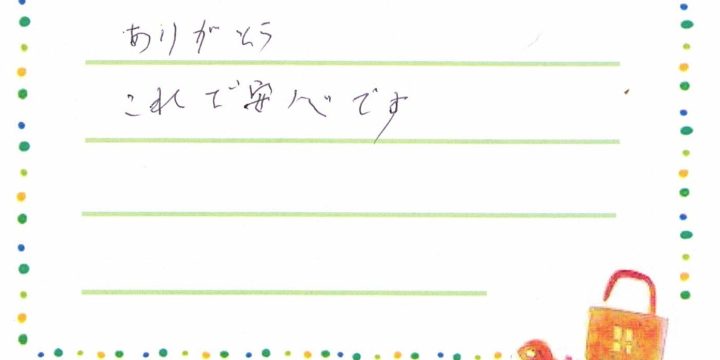 ありがとう
これで安心です